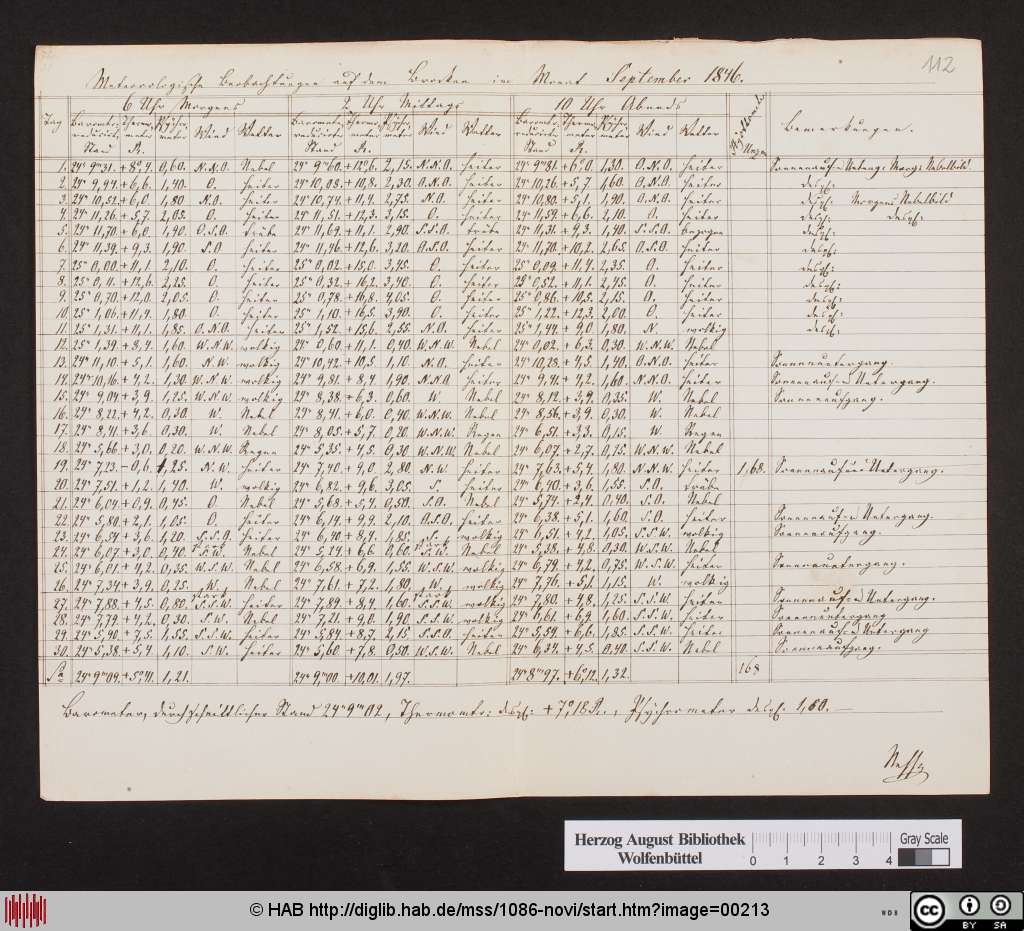 112
Meteorologische Beobachtungen auf dem Brocken im Monat September 1846.
6 Uhr Morgens 2 Uhr Mittags 10 Uhr Abends
Tag Wind Wetter Wind Wetter Wind Wetter Bemerkungen.
1. 24" 9'''31. + 8°,4. 0,60. N.N.O. Nebel 24" 9'''60. + 12°,6. 2,15. N.N.O. heiter 24" 9'''81. + 6°,0. 1,30. O.N.O. heiter
2. 24" 9,94. + 6,6. 1,40. O. heiter 24" 10,08. + 10,8. 2,30. O.N.O. heiter 24" 10,26. + 5,7. 1,60. O.N.O. heiter desgl:
3. 24" 10,52. + 6,0. 1,80 N.O. heiter 24" 10,74 + 11,4. 2,75. N.O. heiter 24" 10,80. + 5,1. 1,90. O.N.O. heiter desgl: Morgens Nebelbild
4. 24" 11,26. + 5,7. 2,05. O. heiter 24" 11,51. + 12,3. 3,15. O. heiter 24" 11,59. + 6,6. 2,10. O. heiter desgl: desgl:
5. 24" 11,70. + 6,0. 1,90. O.S.O. trübe 24" 11,69. + 11,1. 2,90 S.S.O. trübe 24" 11,31. + 9,3. 1,40. S.S.O. bezogen desgl:
6. 24" 11,39. + 9,3. 1,90. S.O heiter 24" 11,46. + 12,6. 3,20. O.S.O. heiter 24" 11,70. + 10,2. 2,65. O.S.O. heiter desgl:
7. 25" 0,00. + 11,1. 2,10. O. heiter 25" 0,02. + 15,0. 3,45. O. heiter 25" 0,09. + 11,4. 2,35. O. heiter desgl:
8. 25" 0,11. + 12,6. 2,25. O. heiter 25" 0,32. + 16,2. 3,40. O. heiter 25" 0,52. + 11,1. 2,45. O. heiter desgl:
9. 25" 0,70. + 12,0. 2,05. O. heiter 25" 0,78. + 16,8. 4,05. O. heiter 25" 0,86. + 10,5. 2,15. O. heiter desgl:
10. 25" 1,06. + 11,4. 1,80. O. heiter 25" 1,10. + 16,5. 3,90. O. heiter 25" 1,22. + 12,3. 2,00. O. heiter desgl:
11. 25" 1,31. + 11,1. 1,85. O.N.O. heiter 25" 1,52. + 15,6. 2,55. N.O. heiter 25" 1,44. + 9,0. 1,80. N. wolkig desgl:
12. 25" 1,39. + 8,4. 1,60. W.N.W. wolkig 24" 0,60. + 11,1. 0,40. W.N.W. Nebel 24" 0,02. + 6,3. 0,30. W.N.W. Nebel
13. 24" 11,10. + 5,1. 1,60. N.W. wolkig 24" 10,42. + 10,5. 1,10. N.O. heiter 24" 10,28. + 4,5. 1,40. O.N.O. heiter Sonnenuntergang.
14. 24" 10,16. + 4,2. 1,30. W.N.W. wolkig 24" 9,81. + 8,4. 1,90. N.N.O heiter 24" 9,41. + 4,2. 1,60. N.N.O. heiter Sonnenauf- u Untergang.
15. 24" 9,04. + 3,9. 1,25. W.N.W. wolkig 24" 8,38. + 6,3. 0,60. W. Nebel 24" 8,12. + 3,9. 0,35. W. Nebel Sonnenaufgang.
16. 24" 8,22. + 4,2. 0,30. W. Nebel 24" 8,41. + 6,0. 0,40. W.N.W. Nebel 24" 8,56. + 3,9. 0,30. W. Nebel
17. 24" 8,41. + 3,6. 0,30. W. Nebel 24" 8,05. + 5,7. 0,20. W.N.W. Regen 24" 6,51. + 3,3. 0,15. W. Regen
18. 24" 5,66. + 3,0. 0,20. W.N.W. Regen 24" 5,35. + 4,5. 0,30. W.N.W. Nebel 24" 6,07. + 2,7. 0,15. W.N.W. Nebel
19. 24" 7,23. – 0,6. 1,25. N.W. heiter 24" 7,40. + 9,0. 2,80. N.W. heiter 24" 7,63. + 5,4. 1,80. N.N.W. heiter 1,68. Sonnenauf- u Untergang.
20. 24" 7,51. + 1,2. 1,40. W. wolkig 24" 6,82. + 9,6. 3,05. S. heiter 24" 6,40. + 3,6. 1,55. S.O. trübe
21. 24" 6,04. + 0,9. 0,45. O. Nebel 24" 5,68. + 5,4. 0,50. S.O. Nebel 24" 5,74. + 2,4. 0,40. S.O. Nebel
22. 24" 5,80. + 2,1. 1,05. O. heiter 24" 6,14. + 9,9. 2,10. O.S.O. heiter 24" 6,38. + 5,1. 1,60. S.O. heiter Sonnenauf- u Untergang.
23. 24" 6,54. + 3,6. 1,20. S.S.O. heiter 24" 6,40. + 8,4. 1,85. S. wolkig 24" 6,51. + 4,2. 1,05. S.S.W. wolkig Sonnenaufgang.
24. 24" 6,07. + 3,0. 0,40. S.W. Nebel 24" 5,24. + 6,6. 0,60. S.W. Nebel 24" 5,38. + 4,8. 0,30. W.S.W. Nebel
25. 24" 6,01. + 4,2. 0,35. W.S.W. Nebel 24" 6,58. + 6,9. 1,55. W.S.W. wolkig 24" 6,79. + 4,2. 0,75. W.S.W. heiter Sonnenuntergang.
26. 24" 7,34. + 3,9. 0,25. W. Nebel 24" 7,61. + 7,2. 1,80. W. wolkig 24" 7,76. + 5,1. 1,15. W. wolkig
27. 24" 7,88. + 4,5. 0,80. stark S.S.W. heiter 24" 7,89. + 8,4. 1,60. stark S.S.W. wolkig 24" 7,80. + 4,8. 1,25. S.S.W. heiter Sonnenauf- u Untergang.
28. 24" 7,79. + 4,2. 0,30. S.W. Nebel 24" 7,21. + 9,0. 1,90. S.S.W. wolkig 24" 6,61. + 6,9. 1,60. S.S.W. heiter Sonnenuntergang
29. 24" 5,90. + 7,5. 1,55. S.S.W. heiter 24" 5,84. + 8,7. 2,15. S.S.O. heiter 24" 5,59. + 6,6. 1,85. S.S.W. heiter Sonnenauf- u Untergang
30. 24" 5,38. + 5,4. 1,10. S.W. heiter 24" 5,60. + 7,8. 0,50. W.S.W. Nebel 24" 6,34. + 4,5. 0,40. S.S.W. Nebel Sonnenaufgang.
Sa 24" 9'''09. + 5°,41. 1,21. 24" 9,'''00. + 10,01. 1,97. 24" 8'''97. + 6°,12. 1,32. 168
Barometer, durchschnittlicher Stand 24" 9''' 02, Thermomtr: desgl: + 7°,18 R., Psychrometer desgl. 1,60.
Herzog August Bibliothek
Wolfenbüttel
0 1 2 3 4
Gray Scale
© HAB http://diglib.hab.de/mss/1086-novi/start.htm?image=00213
WDB
cc BY SA